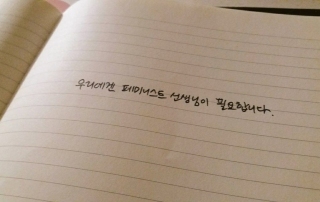 우리에겐 페미니스트 선생님이 필요합니다.